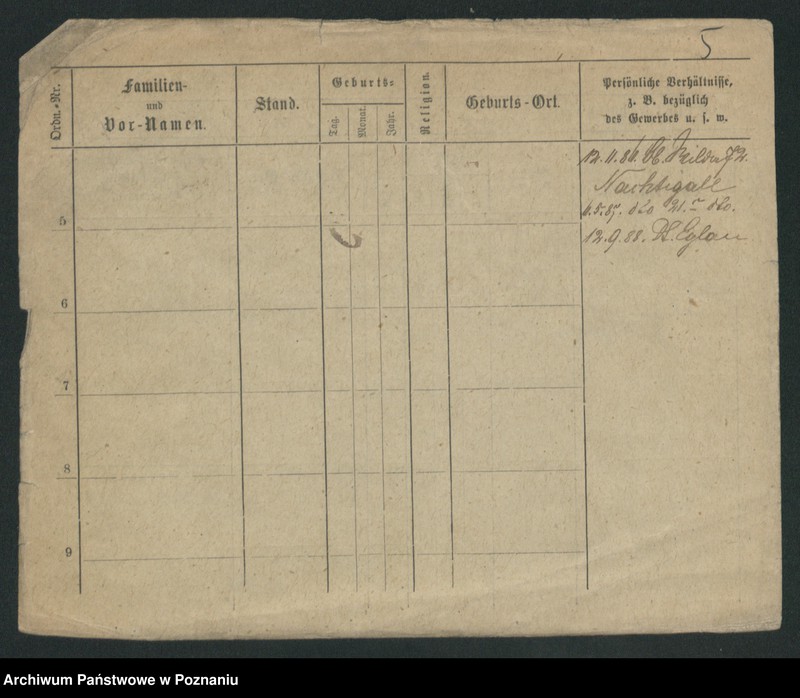 5
Ordn.-Nr.
Familien-
und
Vor-Namen.
Stand.
Geburts-
Tag.
Monat.
Jahr.
Religion.
Geburts-Ort.
Persönliche Verhältnisse,
z. B. bezüglich
des Gewerbes u. s. w.
12.11.86.
Nachtigall
dto 21. dto.
12.9.88. Dt. Eylau
5
6
7
8
9
Archiwum Państwowe w Poznaniu